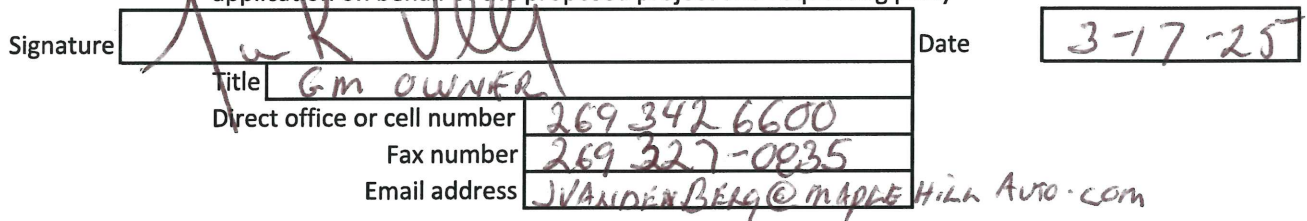 Signature Date 3-17-25
Title GM OWNER
Direct office or cell number 269 342 6600
Fax number 269 327-0835
Email address JVANDENBERG@MAPLEHILLAUTO.COM